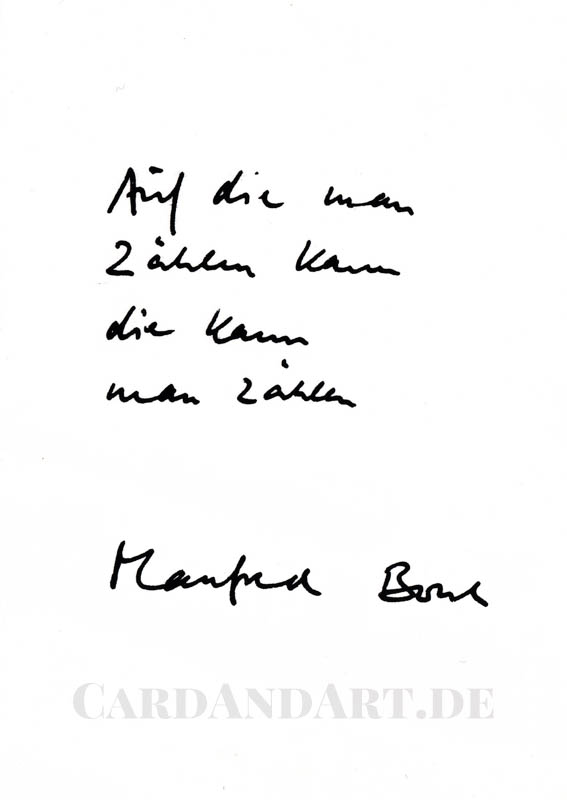 Auf die man
zählen kann
die kann
man zählen
Manfred
CARDANDART.DE